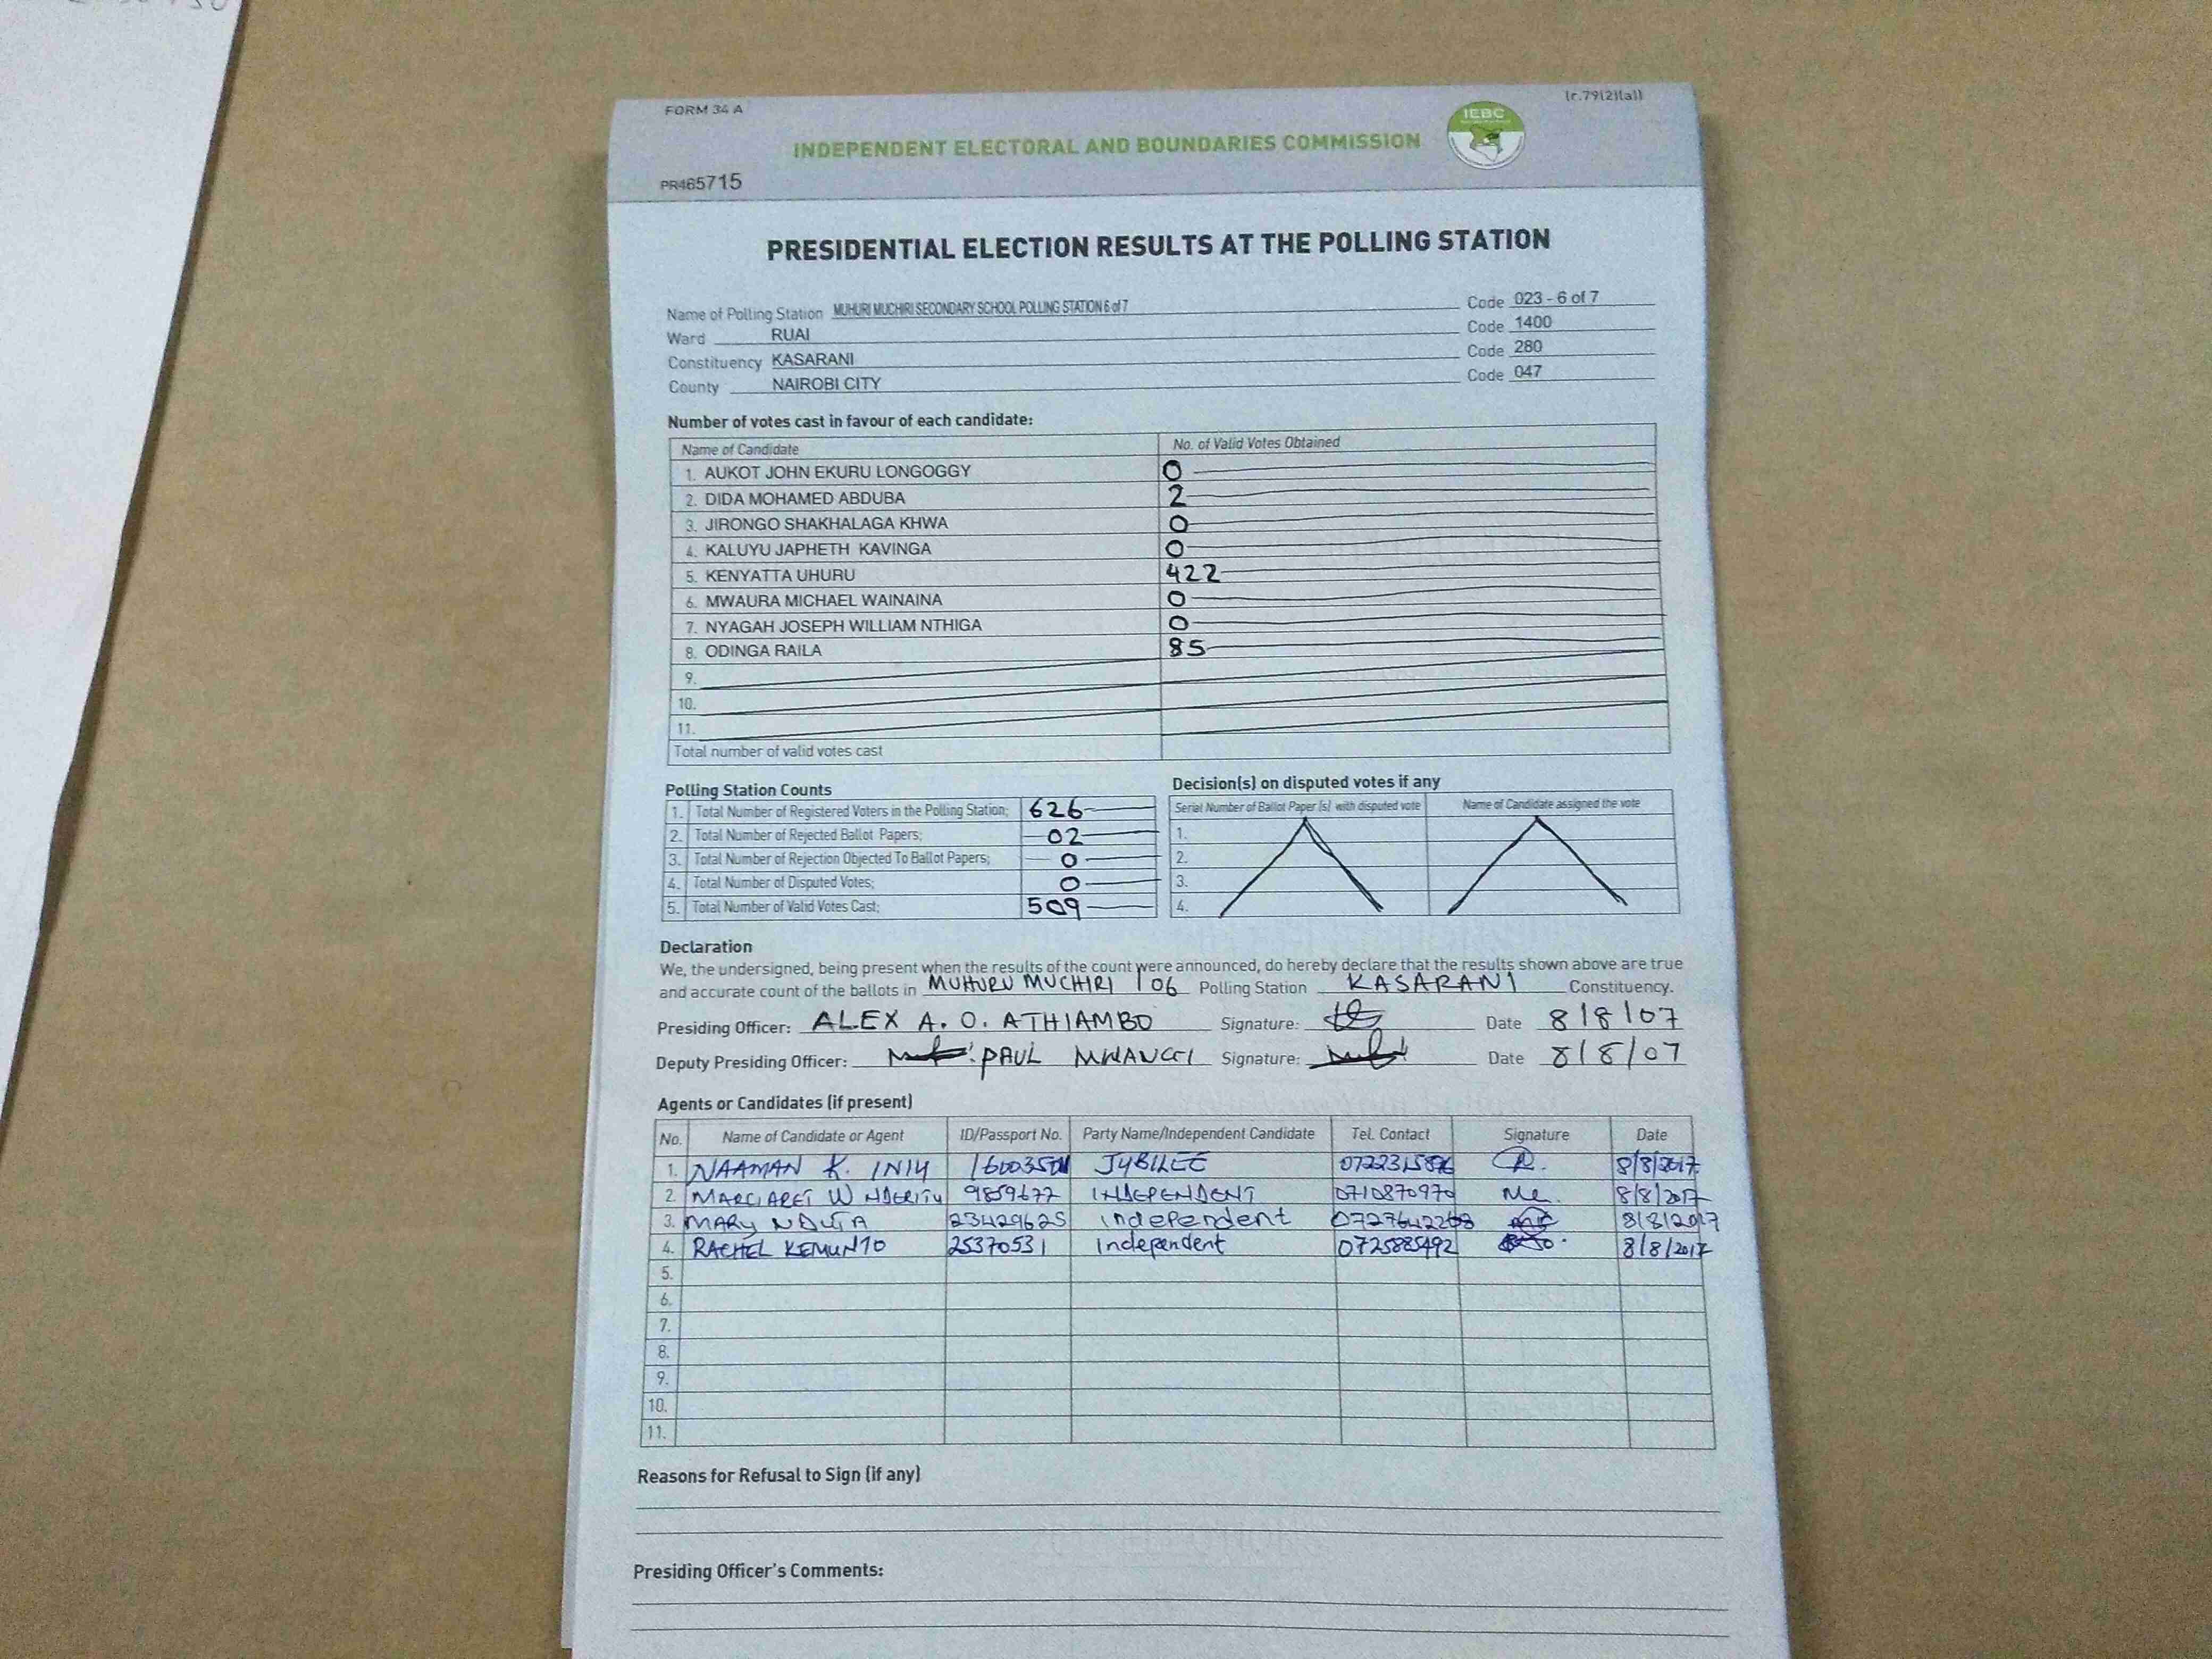 FORM 34 A
(r.79(2)(a))
IEBC
INDEPENDENT ELECTORAL AND BOUNDARIES COMMISSION
PR465715
PRESIDENTIAL ELECTION RESULTS AT THE POLLING STATION
Name of Polling Station MUHURI MUCHIRI SECONDARY SCHOOL POLLING STATION 6 of 7 Code 023 - 6 of 7
Ward RUAI Code 1400
Constituency KASARANI Code 280
County NAIROBI CITY Code 047
Number of votes cast in favour of each candidate:
Name of Candidate No. of Valid Votes Obtained
1. AUKOT JOHN EKURU LONGOGGY 0
2. DIDA MOHAMED ABDUBA 2
3. JIRONGO SHAKHALAGA KHWA 0
4. KALUYU JAPHETH KAVINGA 0
5. KENYATTA UHURU 422
6. MWAURA MICHAEL WAINAINA 0
7. NYAGAH JOSEPH WILLIAM NTHIGA 0
8. ODINGA RAILA 85
9.
10.
11.
Total number of valid votes cast
Polling Station Counts
1. Total Number of Registered Voters in the Polling Station; 626
2. Total Number of Rejected Ballot Papers; 02
3. Total Number of Rejection Objected To Ballot Papers; 0
4. Total Number of Disputed Votes; 0
5. Total Number of Valid Votes Cast; 509
Decision(s) on disputed votes if any
Serial Number of Ballot Paper (s) with disputed vote Name of Candidate assigned the vote
1.
2.
3.
4.
Declaration
We, the undersigned, being present when the results of the count were announced, do hereby declare that the results shown above are true
and accurate count of the ballots in MUHURU MUCHIRI / 06 Polling Station KASARANI Constituency.
Presiding Officer: ALEX A. O. ATHIAMBO Signature: Date 8/8/07
Deputy Presiding Officer: PAUL MWANGI Signature: Date 8/8/07
Agents or Candidates (if present)
No. Name of Candidate or Agent ID/Passport No. Party Name/Independent Candidate Tel. Contact Signature Date
1. NAAMAN K. JUBILEE 8/8/2017
2. MARGARET W NDERITU 9859677 INDEPENDENT 0710870970 8/8/2017
3. MARY NDUTA 23429625 Independent 8/8/2017
4. RACHEL KEMUNTO 25370531 Independent 0725885492 8/8/2017
5.
6.
7.
8.
9.
10.
11.
Reasons for Refusal to Sign (if any)
Presiding Officer's Comments: